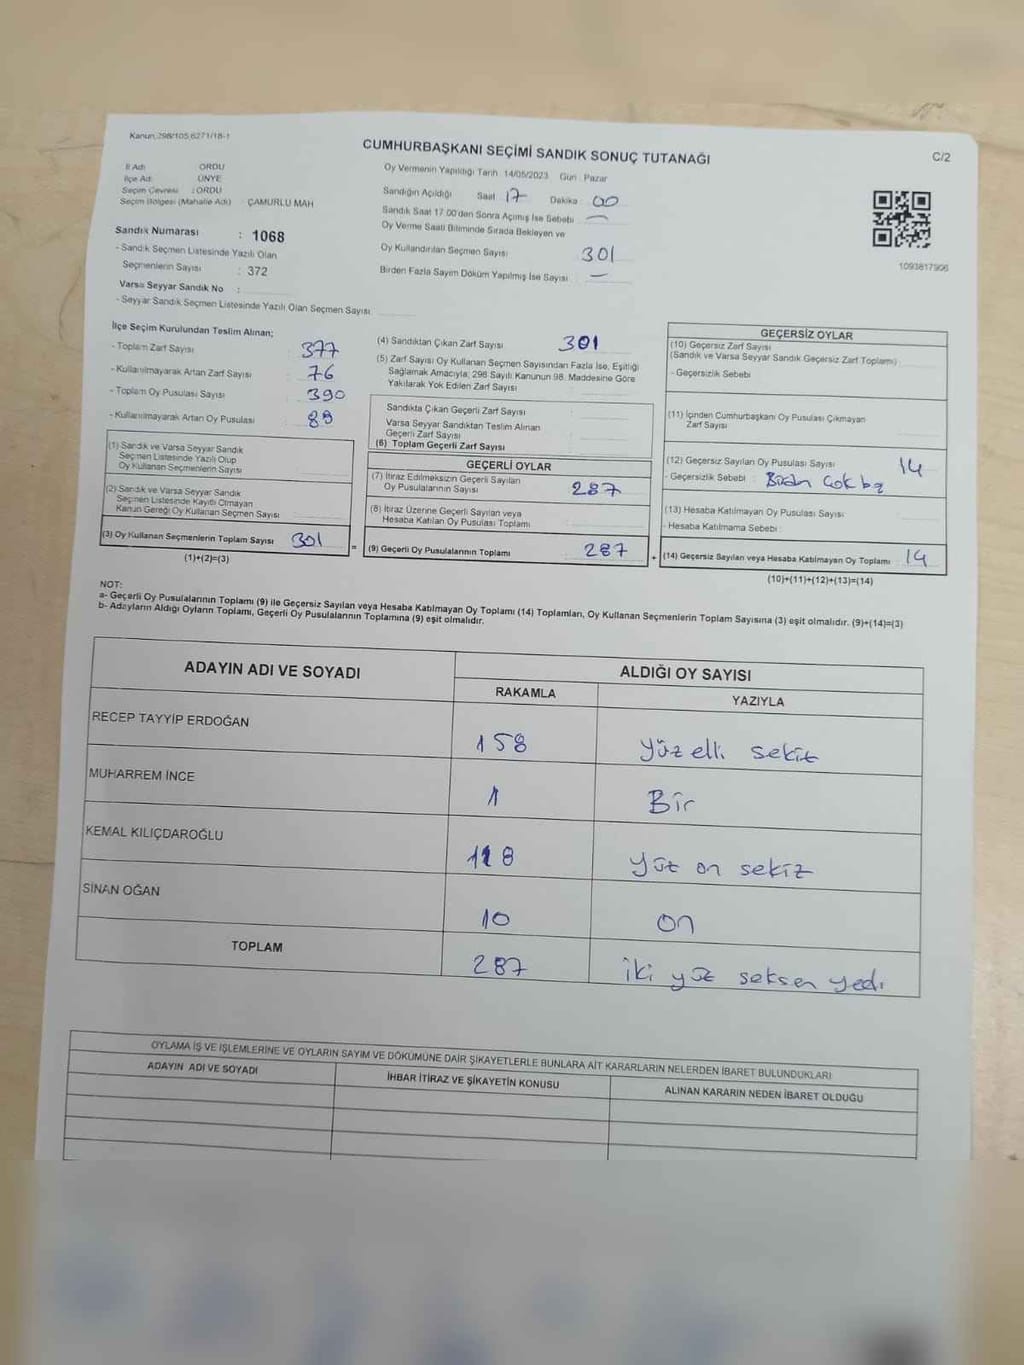 Kanun:298/105;6271/18-1
CUMHURBAŞKANI SEÇİMİ SANDIK SONUÇ TUTANAĞI
C/2
İl Adı : ORDU
İlçe Adı : ÜNYE
Seçim Çevresi : ORDU
Seçim Bölgesi (Mahalle Adı) : ÇAMURLU MAH
Oy Vermenin Yapıldığı Tarih 14/05/2023 Gün : Pazar
Sandığın Açıldığı Saat 17 Dakika 00
Sandık Saat 17:00'den Sonra Açılmış İse Sebebi —
Oy Verme Saati Bitiminde Sırada Bekleyen ve
Oy Kullandırılan Seçmen Sayısı 301
Birden Fazla Sayım Döküm Yapılmış İse Sayısı —
1093817906
Sandık Numarası : 1068
- Sandık Seçmen Listesinde Yazılı Olan
Seçmenlerin Sayısı : 372
Varsa Seyyar Sandık No :
- Seyyar Sandık Seçmen Listesinde Yazılı Olan Seçmen Sayısı
İlçe Seçim Kurulundan Teslim Alınan;
- Toplam Zarf Sayısı 377
- Kullanılmayarak Artan Zarf Sayısı 76
- Toplam Oy Pusulası Sayısı 390
- Kullanılmayarak Artan Oy Pusulası 89
(1) Sandık ve Varsa Seyyar Sandık
Seçmen Listesinde Yazılı Olup
Oy Kullanan Seçmenlerin Sayısı
(2) Sandık ve Varsa Seyyar Sandık
Seçmen Listesinde Kayıtlı Olmayan
Kanun Gereği Oy Kullanan Seçmen Sayısı
(3) Oy Kullanan Seçmenlerin Toplam Sayısı 301 =
(1)+(2)=(3)
(4) Sandıktan Çıkan Zarf Sayısı 301
(5) Zarf Sayısı Oy Kullanan Seçmen Sayısından Fazla İse, Eşitliği
Sağlamak Amacıyla; 298 Sayılı Kanunun 98. Maddesine Göre
Yakılarak Yok Edilen Zarf Sayısı
Sandıkta Çıkan Geçerli Zarf Sayısı
Varsa Seyyar Sandıktan Teslim Alınan
Geçerli Zarf Sayısı
(6) Toplam Geçerli Zarf Sayısı
GEÇERLİ OYLAR
(7) İtiraz Edilmeksizin Geçerli Sayılan
Oy Pusulalarının Sayısı 287
(8) İtiraz Üzerine Geçerli Sayılan veya
Hesaba Katılan Oy Pusulası Toplamı
(9) Geçerli Oy Pusulalarının Toplamı 287 +
GEÇERSİZ OYLAR
(10) Geçersiz Zarf Sayısı
(Sandık ve Varsa Seyyar Sandık Geçersiz Zarf Toplamı)
- Geçersizlik Sebebi
(11) İçinden Cumhurbaşkanı Oy Pusulası Çıkmayan
Zarf Sayısı
(12) Geçersiz Sayılan Oy Pusulası Sayısı 14
- Geçersizlik Sebebi :
(13) Hesaba Katılmayan Oy Pusulası Sayısı
- Hesaba Katılmama Sebebi :
(14) Geçersiz Sayılan veya Hesaba Katılmayan Oy Toplamı 14
(10)+(11)+(12)+(13)=(14)
NOT:
a- Geçerli Oy Pusulalarının Toplamı (9) ile Geçersiz Sayılan veya Hesaba Katılmayan Oy Toplamı (14) Toplamları, Oy Kullanan Seçmenlerin Toplam Sayısına (3) eşit olmalıdır. (9)+(14)=(3)
b- Adayların Aldığı Oyların Toplamı, Geçerli Oy Pusulalarının Toplamına (9) eşit olmalıdır.
ADAYIN ADI VE SOYADI
ALDIĞI OY SAYISI
RAKAMLA YAZIYLA
RECEP TAYYİP ERDOĞAN 158 Yüz elli sekiz
MUHARREM İNCE 1 Bir
KEMAL KILIÇDAROĞLU 118 yüz on sekiz
SİNAN OĞAN 10 on
TOPLAM 287 iki yüz seksen yedi
OYLAMA İŞ VE İŞLEMLERİNE VE OYLARIN SAYIM VE DÖKÜMÜNE DAİR ŞİKAYETLERLE BUNLARA AİT KARARLARIN NELERDEN İBARET BULUNDUKLARI
ADAYIN ADI VE SOYADI
İHBAR İTİRAZ VE ŞİKAYETİN KONUSU
ALINAN KARARIN NEDEN İBARET OLDUĞU